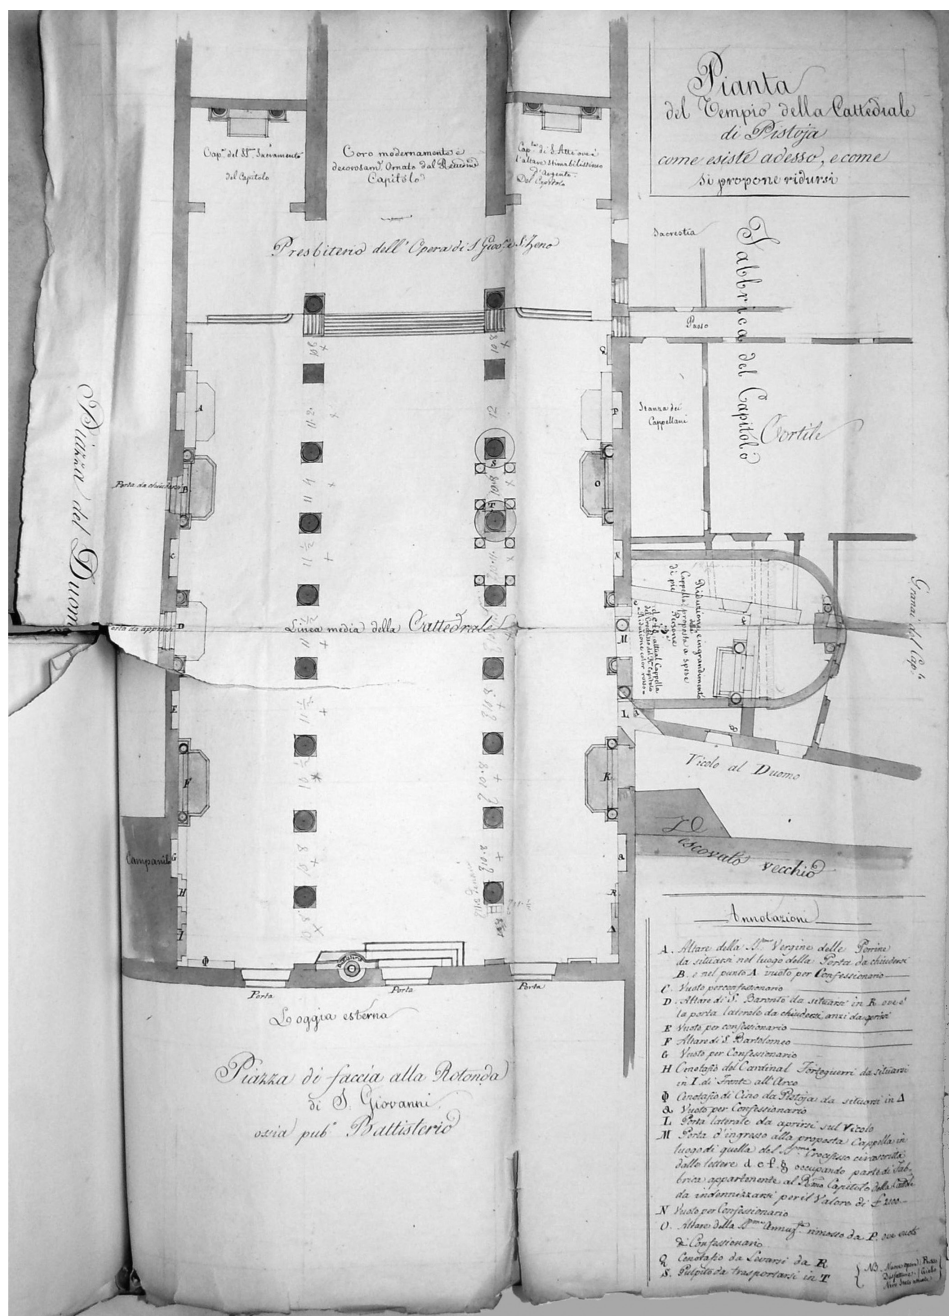 Pianta
del Tempio della Cattedrale
di Pistoja
come esiste adesso, e come
si propone ridursi
Capª. del SSmo. Sacramento
del Capitolo
Coro modernamente e
decorosamte. Ornato dal
Capitolo
Capla. di S. Atto ove è
l'altare stimabilissimo
d'Argento
Del Capitolo
Sacrestia
Presbiterio dell'Opera di S. Giov. e S. Zeno
Passo
Fabbrica del Capitolo
Stanza dei
Cappellani
Cortile
Piazza del Duomo
Porta da chiudersi
Porta da aprirsi
Linea media della Cattedrale
Granai del Capo.
Vicolo al Duomo
Vescovato vecchio
Campanile
Porta
Porta
Porta
Loggia esterna
Piazza di faccia alla Rotonda
di S. Giovanni
ossia pubo. Battisterio
Annotazioni
A. Altare della Bma. Vergine delle Porrine
da situarsi nel luogo della Porta da chiudersi
B. e nel punto A vuoto per Confessionario
C Vuoto per confessionario
D Altare di S. Baronto da situarsi in R ove è
la porta laterale da chiudersi, anzi da aprirsi
E Vuoto per confessionario
F Altare di S. Bartolomeo
G Vuoto per Confessionario
H Cenotafio del Cardinal Forteguerri da situarsi
in I. di fronte all'Arco
Φ Cenotafio di Cino da Pistoja da situarsi in Δ
a Vuoto per Confessionario
L Porta laterale da aprirsi sul Vicolo
M Porta d'ingresso alla proposta Cappella in
luogo di quella del Crocifisso circoscritta
dalle lettere d. e. f. g. occupando parte di Fab-
brica appartenente al Capitolo della Catte.
da indennizzarsi per il Valore di
N Vuoto per Confessionario
O. Altare della Bma. Annunzta. rimosso da P. ove vuoto
di Confessionario
Q Cenotafio da Levarsi da R
S. Pulpito da trasportarsi in T